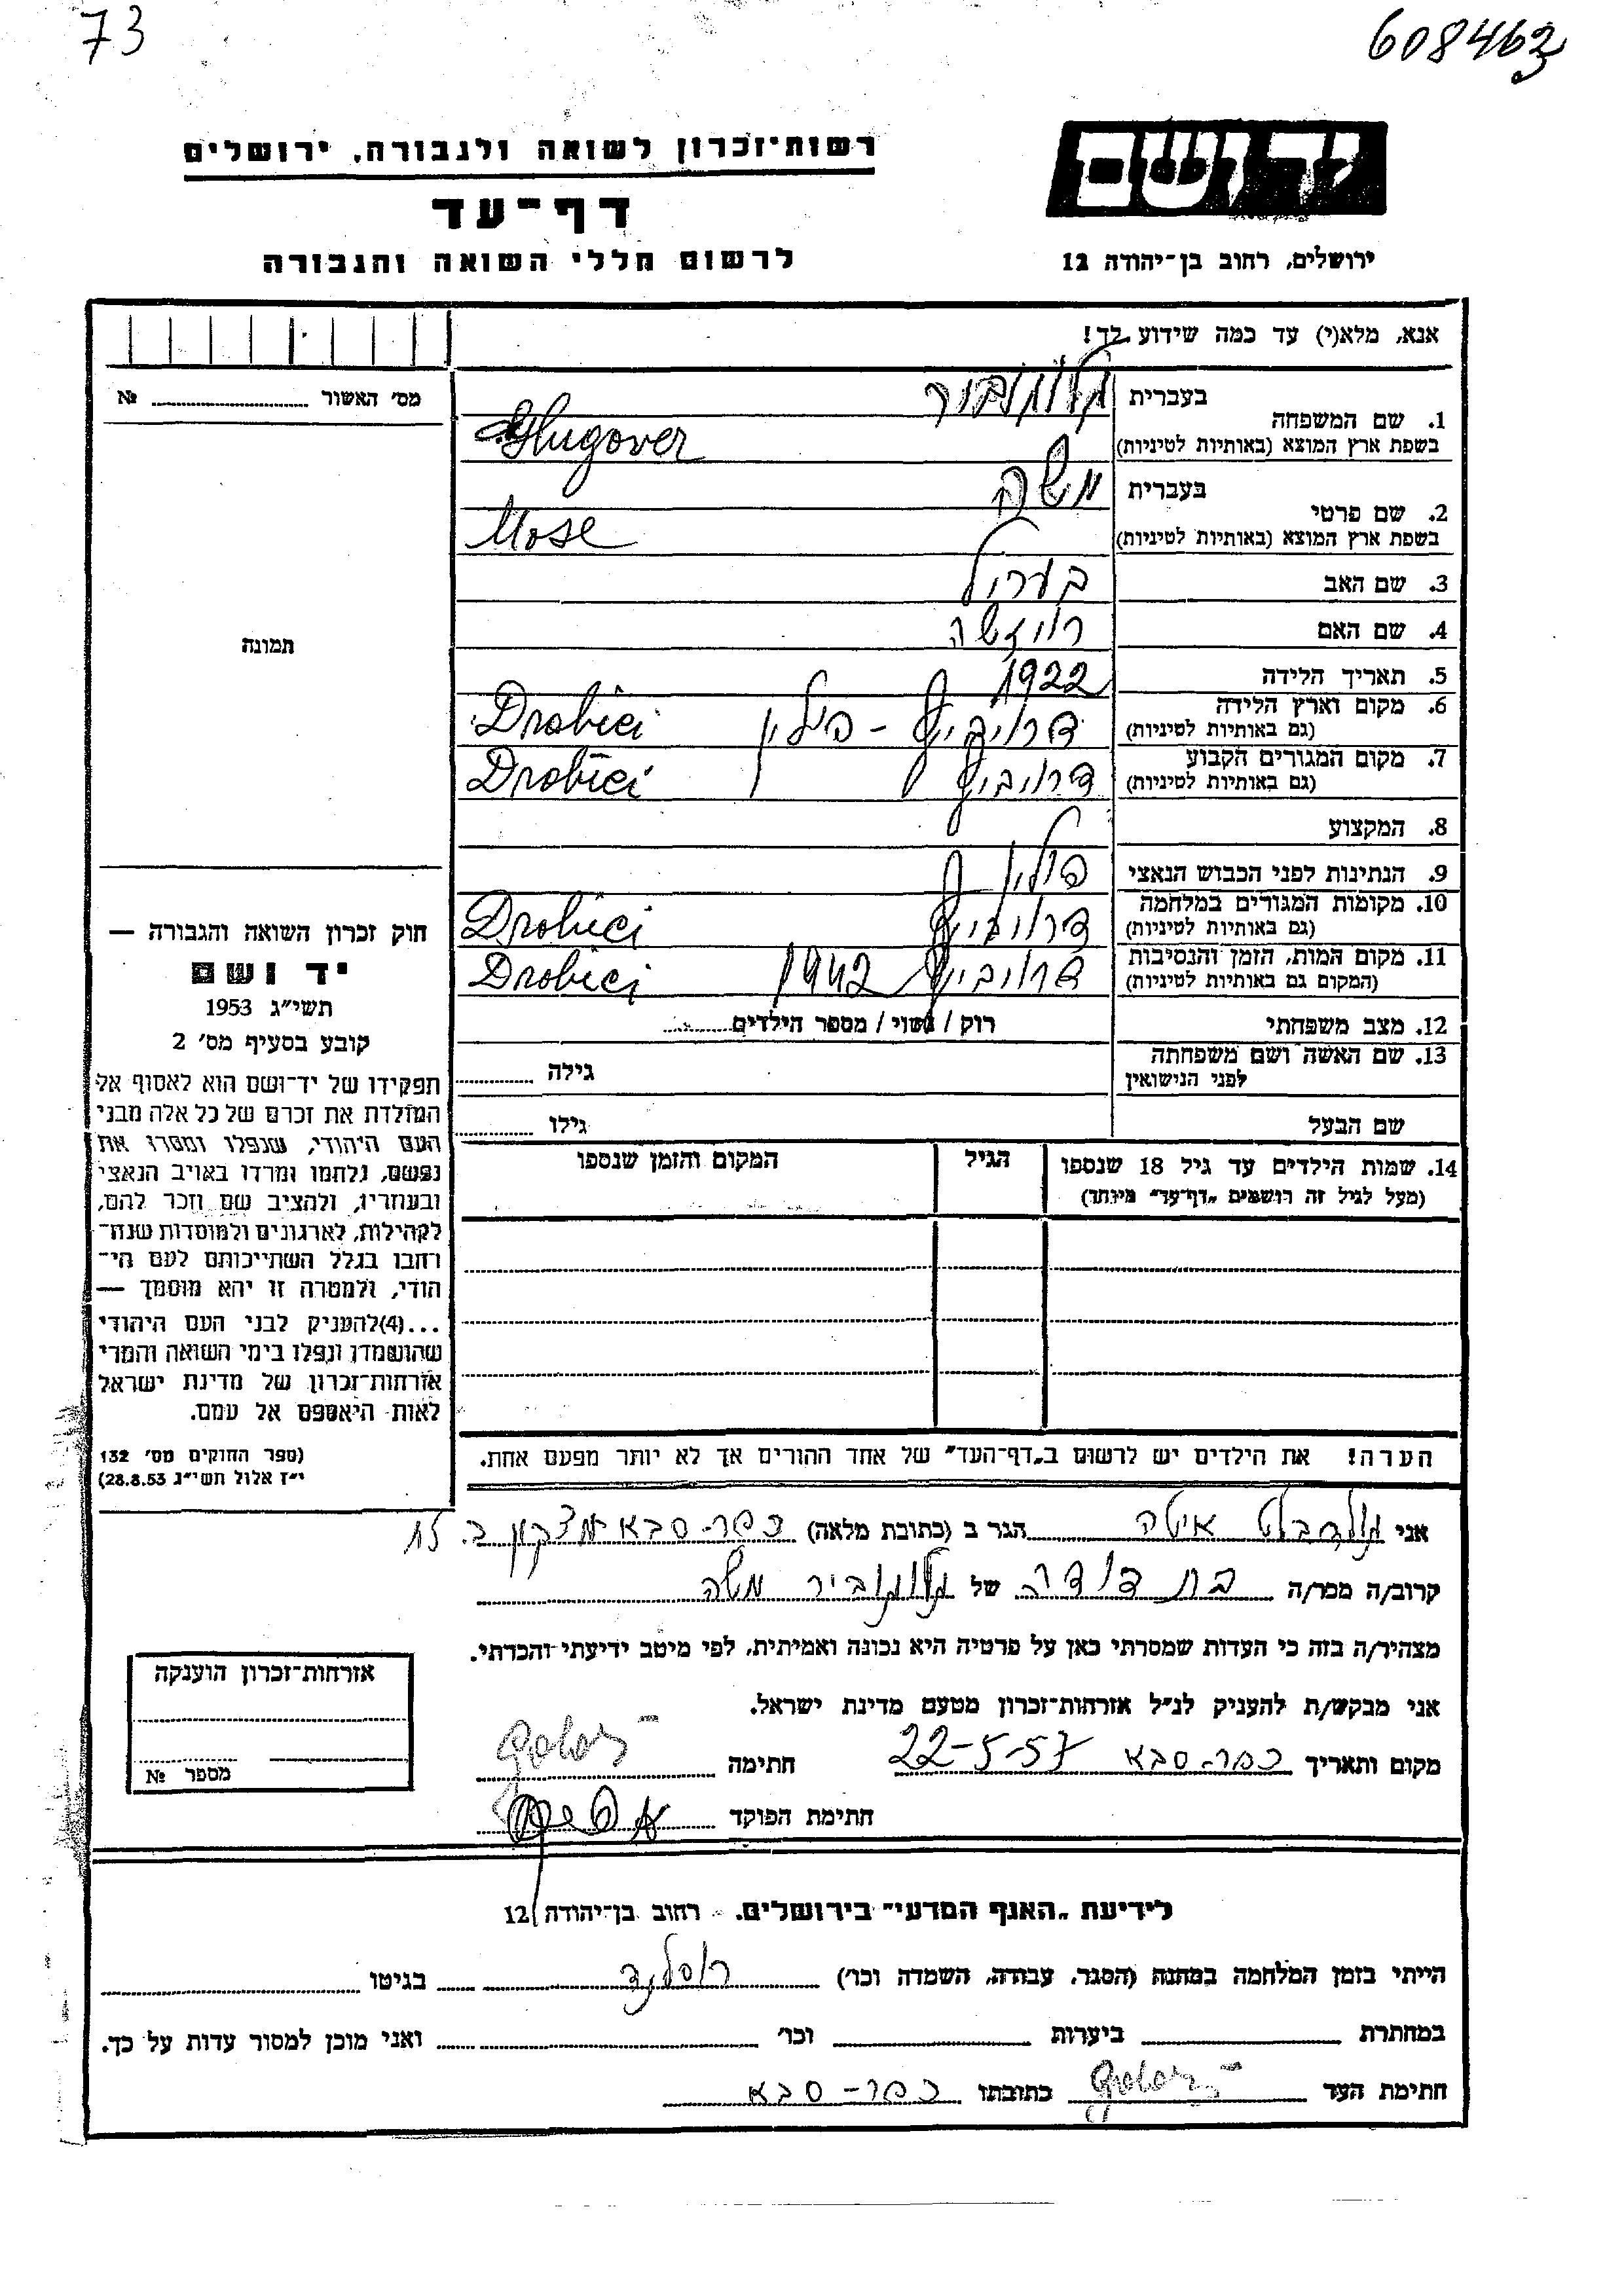 73
608463
רשות־זכרון לשואה ולגבורה, ירושלים
יד ושם
דף־עד
לרשום חללי השואה והגבורה
ירושלים, רחוב בן־יהודה 12
אנא, מלא(י) עד כמה שידוע לך!
מס׳ האשור № 
1. שם המשפחה
בעברית
בשפת ארץ המוצא (באותיות לטיניות) Glugover
2. שם פרטי
בעברית משה
בשפת ארץ המוצא (באותיות לטיניות) Mose
3. שם האב בעריל
4. שם האם רויזשה
תמונה
5. תאריך הלידה 1922
6. מקום וארץ הלידה (גם באותיות לטיניות) - פולין Drobici
7. מקום המגורים הקבוע (גם באותיות לטיניות) Drobici
8. המקצוע
9. הנתינות לפני הכבוש הנאצי
10. מקומות המגורים במלחמה (גם באותיות לטיניות) Drobici
11. מקום המות, הזמן והנסיבות (המקום גם באותיות לטיניות) 1942 Drobici
12. מצב משפחתי רוק / נשוי / מספר הילדים
13. שם האשה ושם משפחתה לפני הנישואין גילה
שם הבעל גילו
14. שמות הילדים עד גיל 18 שנספו
(מעל לגיל זה רושמים „דף־עד״ מיוחד)
הגיל
המקום והזמן שנספו
הערה! את הילדים יש לרשום ב„דף־העד״ של אחד ההורים אך לא יותר מפעם אחת.
חוק זכרון השואה והגבורה —
יד ושם
תשי״ג 1953
קובע בסעיף מס׳ 2
תפקידו של יד־ושם הוא לאסוף אל
המולדת את זכרם של כל אלה מבני
העם היהודי, שנפלו ומסרו את
נפשם, נלחמו ומרדו באויב הנאצי
ובעוזריו, ולהציב שם וזכר להם,
לקהילות, לארגונים ולמוסדות שנח־
רחבו בגלל השתייכותם לעם הי־
הודי, ולמטרה זו יהא מוסמך —
...(4)להעניק לבני העם היהודי
שהושמדו ונפלו בימי השואה והמרי
אזרחות־זכרון של מדינת ישראל
לאות היאספם אל עמם.
(ספר החוקים מס׳ 132
י״ז אלול תשי״ג 28.8.53)
אני גולדבלט איטה הגר ב (כתובת מלאה) כפר-סבא
קרוב/ה מכר/ה בת דודה של משה
מצהיר/ה בזה כי העדות שמסרתי כאן על פרטיה היא נכונה ואמיתית, לפי מיטב ידיעתי והכרתי.
אני מבקש/ת להעניק לנ״ל אזרחות־זכרון מטעם מדינת ישראל.
מקום ותאריך כפר-סבא 22-5-57 חתימה
חתימת הפוקד
אזרחות־זכרון הוענקה
מספר №
לידיעת „האגף המדעי״ בירושלים. רחוב בן־יהודה 12
הייתי בזמן המלחמה במחנה (הסגר, עבודה, השמדה וכו׳) רוסלנד בגיטו
במחתרת ביערות וכו׳ ואני מוכן למסור עדות על כך.
חתימת העד כתובתו כפר-סבא